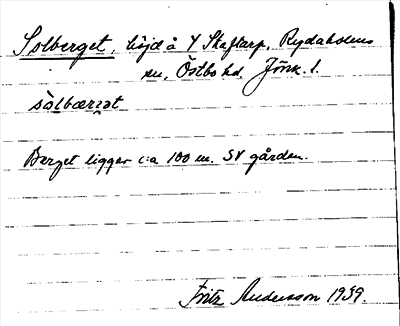 Solberget, höjd å Y Skaftarp, Rydaholms
sn, Östbo hd, Jönk. l.
sòlbærjat
Berget ligger c:a 100 m. SV gården.
Fritz Andersson 1939.